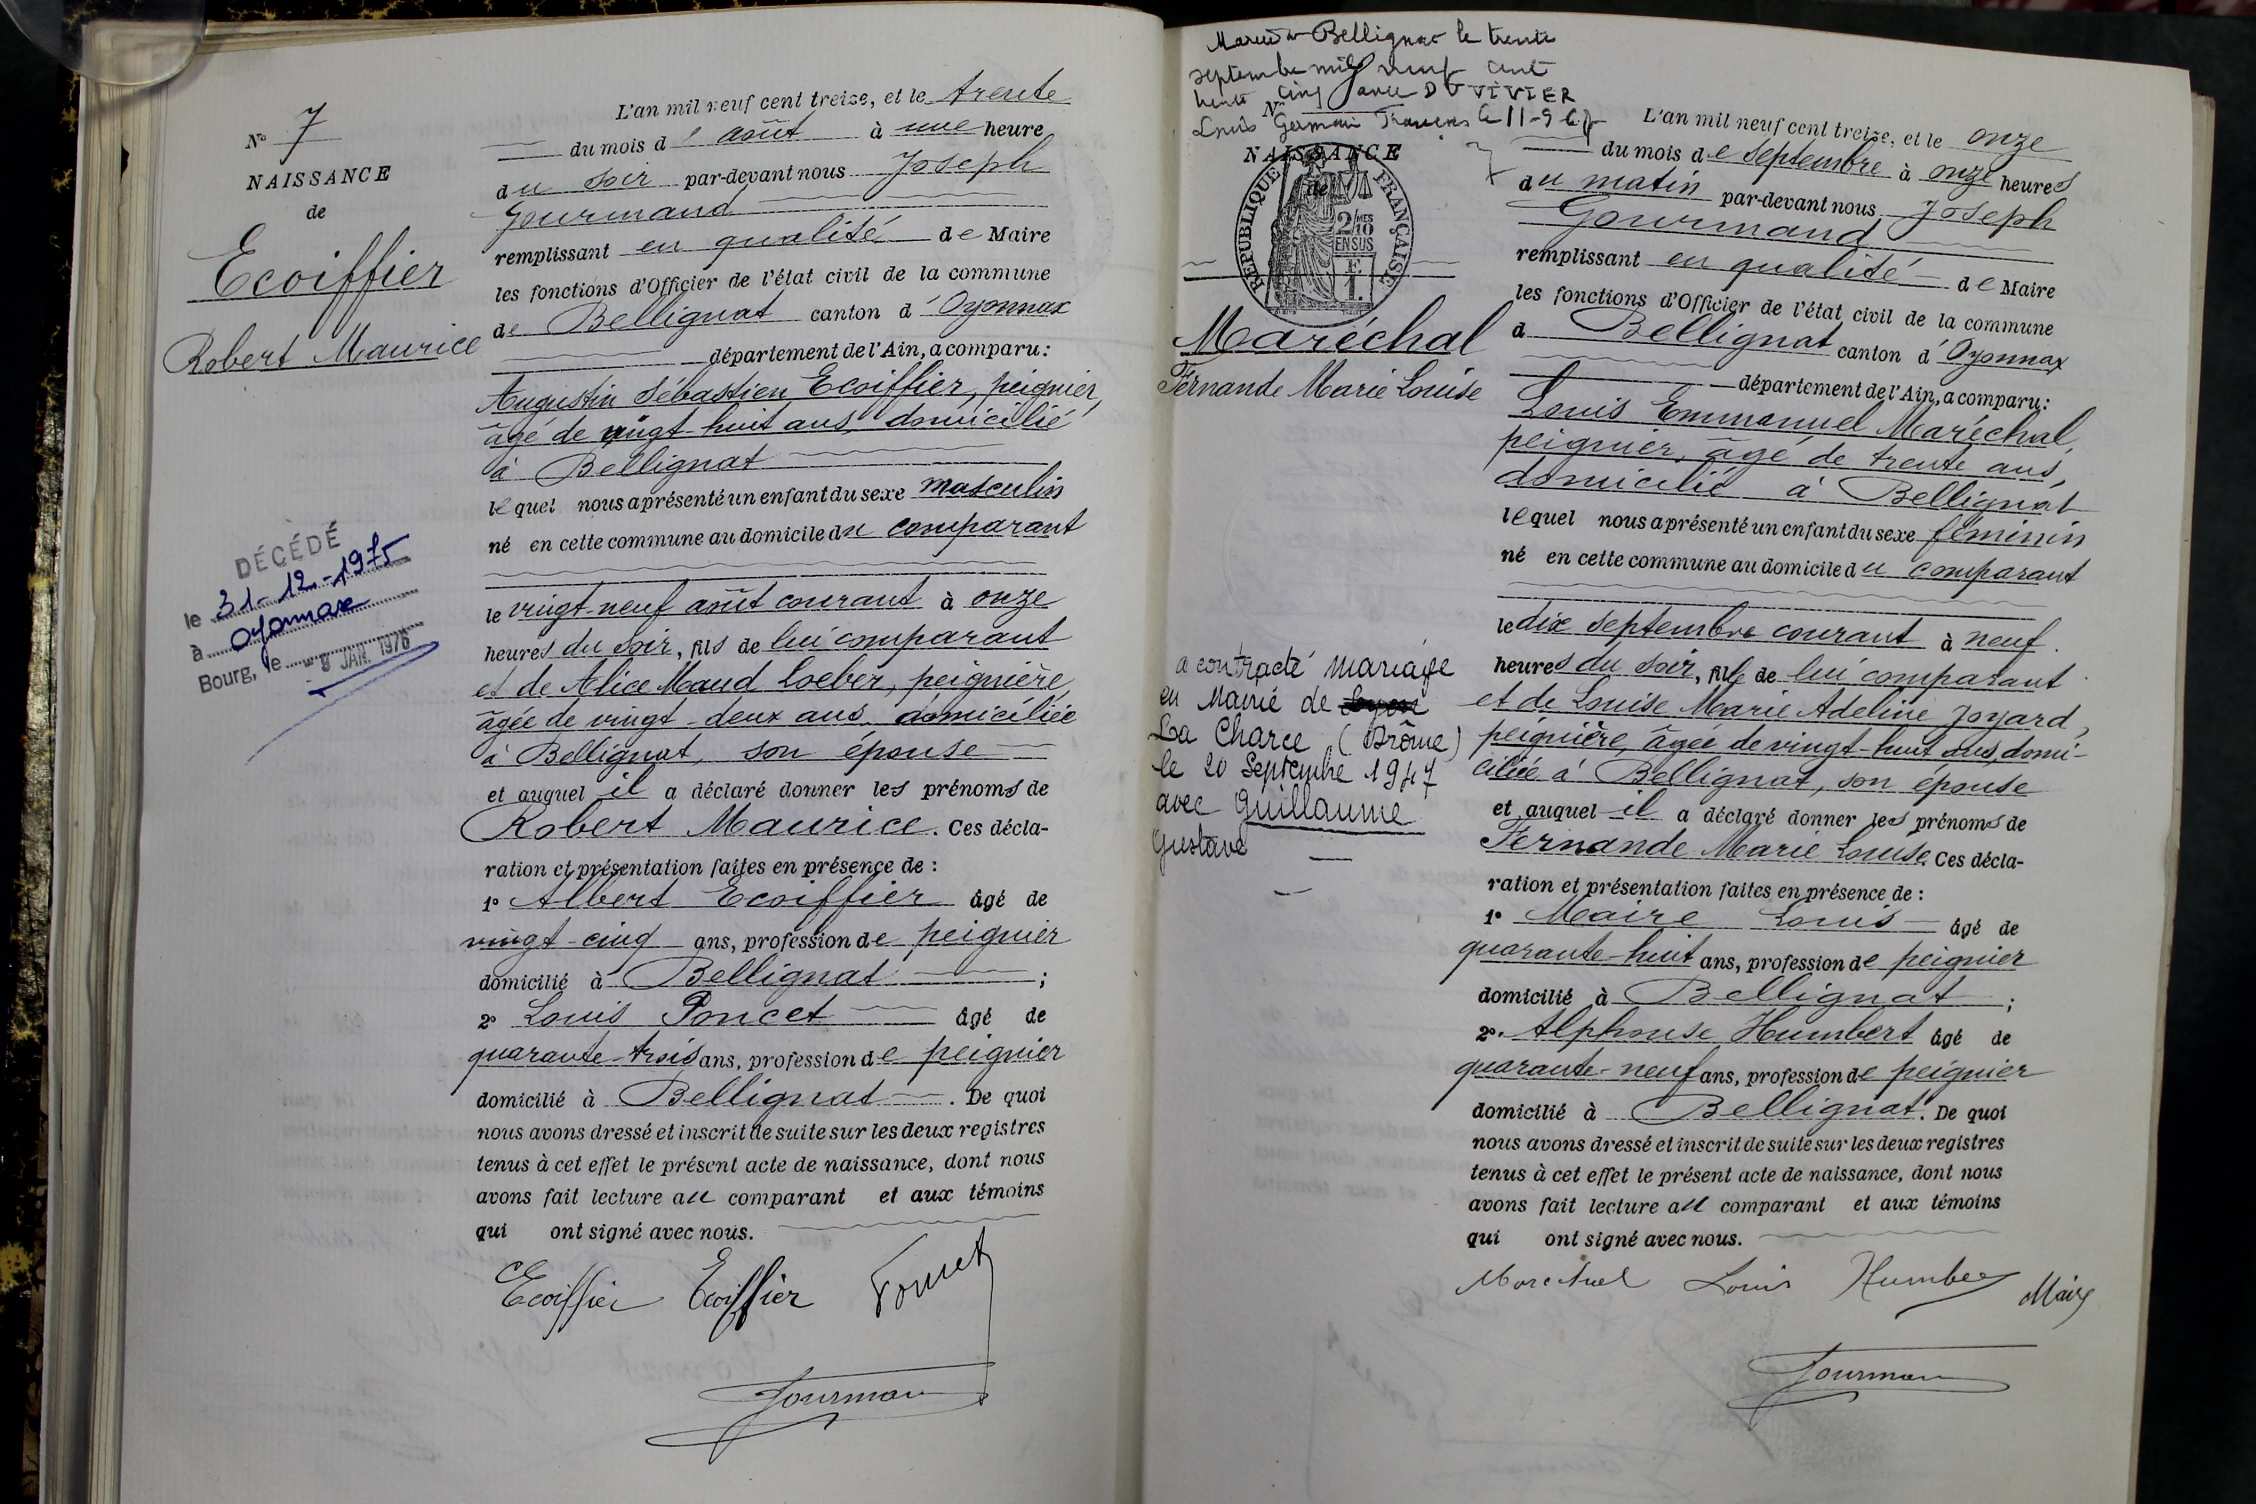 N° 7
NAISSANCE
de
Ecoiffier
Robert Maurice
DÉCÉDÉ
le 31-12-1975
à Oyonnax
Bourg, le - 8 JAN. 1976
L'an mil neuf cent treize, et le trente
du mois d'août à une heure
du soir par-devant nous Joseph
Gourmand
remplissant en qualité de Maire
les fonctions d'Officier de l'état civil de la commune
de Bellignat canton d'Oyonnax
département de l'Ain, a comparu:
Augustin Sébastien Ecoiffier, peignier,
âgé de vingt-huit ans, domicilié
à Bellignat
lequel nous a présenté un enfant du sexe masculin
né en cette commune au domicile du comparant
le vingt-neuf août courant à onze
heures du soir, fils de lui comparant
et de Alice Maud Loeber, peignière,
âgée de vingt-deux ans domiciliée
à Bellignat, son épouse
et auquel il a déclaré donner les prénoms de
Robert Maurice. Ces décla-
ration et présentation faites en présence de :
1° Albert Ecoiffier âgé de
vingt-cinq ans, profession de peignier
domicilié à Bellignat ;
2° Louis Poncet âgé de
quarante-trois ans, profession de peignier
domicilié à Bellignat. De quoi
nous avons dressé et inscrit de suite sur les deux registres
tenus à cet effet le présent acte de naissance, dont nous
avons fait lecture au comparant et aux témoins
qui ont signé avec nous.
Ecoiffier Ecoiffier Poncet
Gourmand
Bellignat le trente
septembre mil neuf cent
trente cinq avec DUVIVIER
Louis Germain François le 11-9-
N°
NAISSANCE
de
RÉPUBLIQUE FRANÇAISE
2/10 MES
EN SUS
F.
1.
Maréchal
Fernande Marie Louise
a contracté mariage
en Mairie de
La Charce (Drôme)
le 20 Septembre 1947
avec Guillaume
Gustave
L'an mil neuf cent treize, et le onze
du mois de septembre à onze heures
du matin par-devant nous Joseph
Gourmand
remplissant en qualité de Maire
les fonctions d'Officier de l'état civil de la commune
d Bellignat canton d'Oyonnax
département de l'Ain, a comparu:
Louis Emmanuel Maréchal,
peignier, âgé de trente ans,
domicilié à Bellignat
lequel nous a présenté un enfant du sexe féminin
né en cette commune au domicile du comparant
le dix septembre courant à neuf
heures du soir, fille de lui comparant
et de Louise Marie Adeline Joyard,
peignière, âgée de vingt-huit ans, domi-
ciliée à Bellignat, son épouse
et auquel il a déclaré donner les prénoms de
Fernande Marie Louise. Ces décla-
ration et présentation faites en présence de :
1° Maire Louis âgé de
quarante-huit ans, profession de peignier
domicilié à Bellignat ;
2° Alphonse Humbert âgé de
quarante-neuf ans, profession de peignier
domicilié à Bellignat. De quoi
nous avons dressé et inscrit de suite sur les deux registres
tenus à cet effet le présent acte de naissance, dont nous
avons fait lecture au comparant et aux témoins
qui ont signé avec nous.
Marechal Louis Humbert Maire
Gourmand